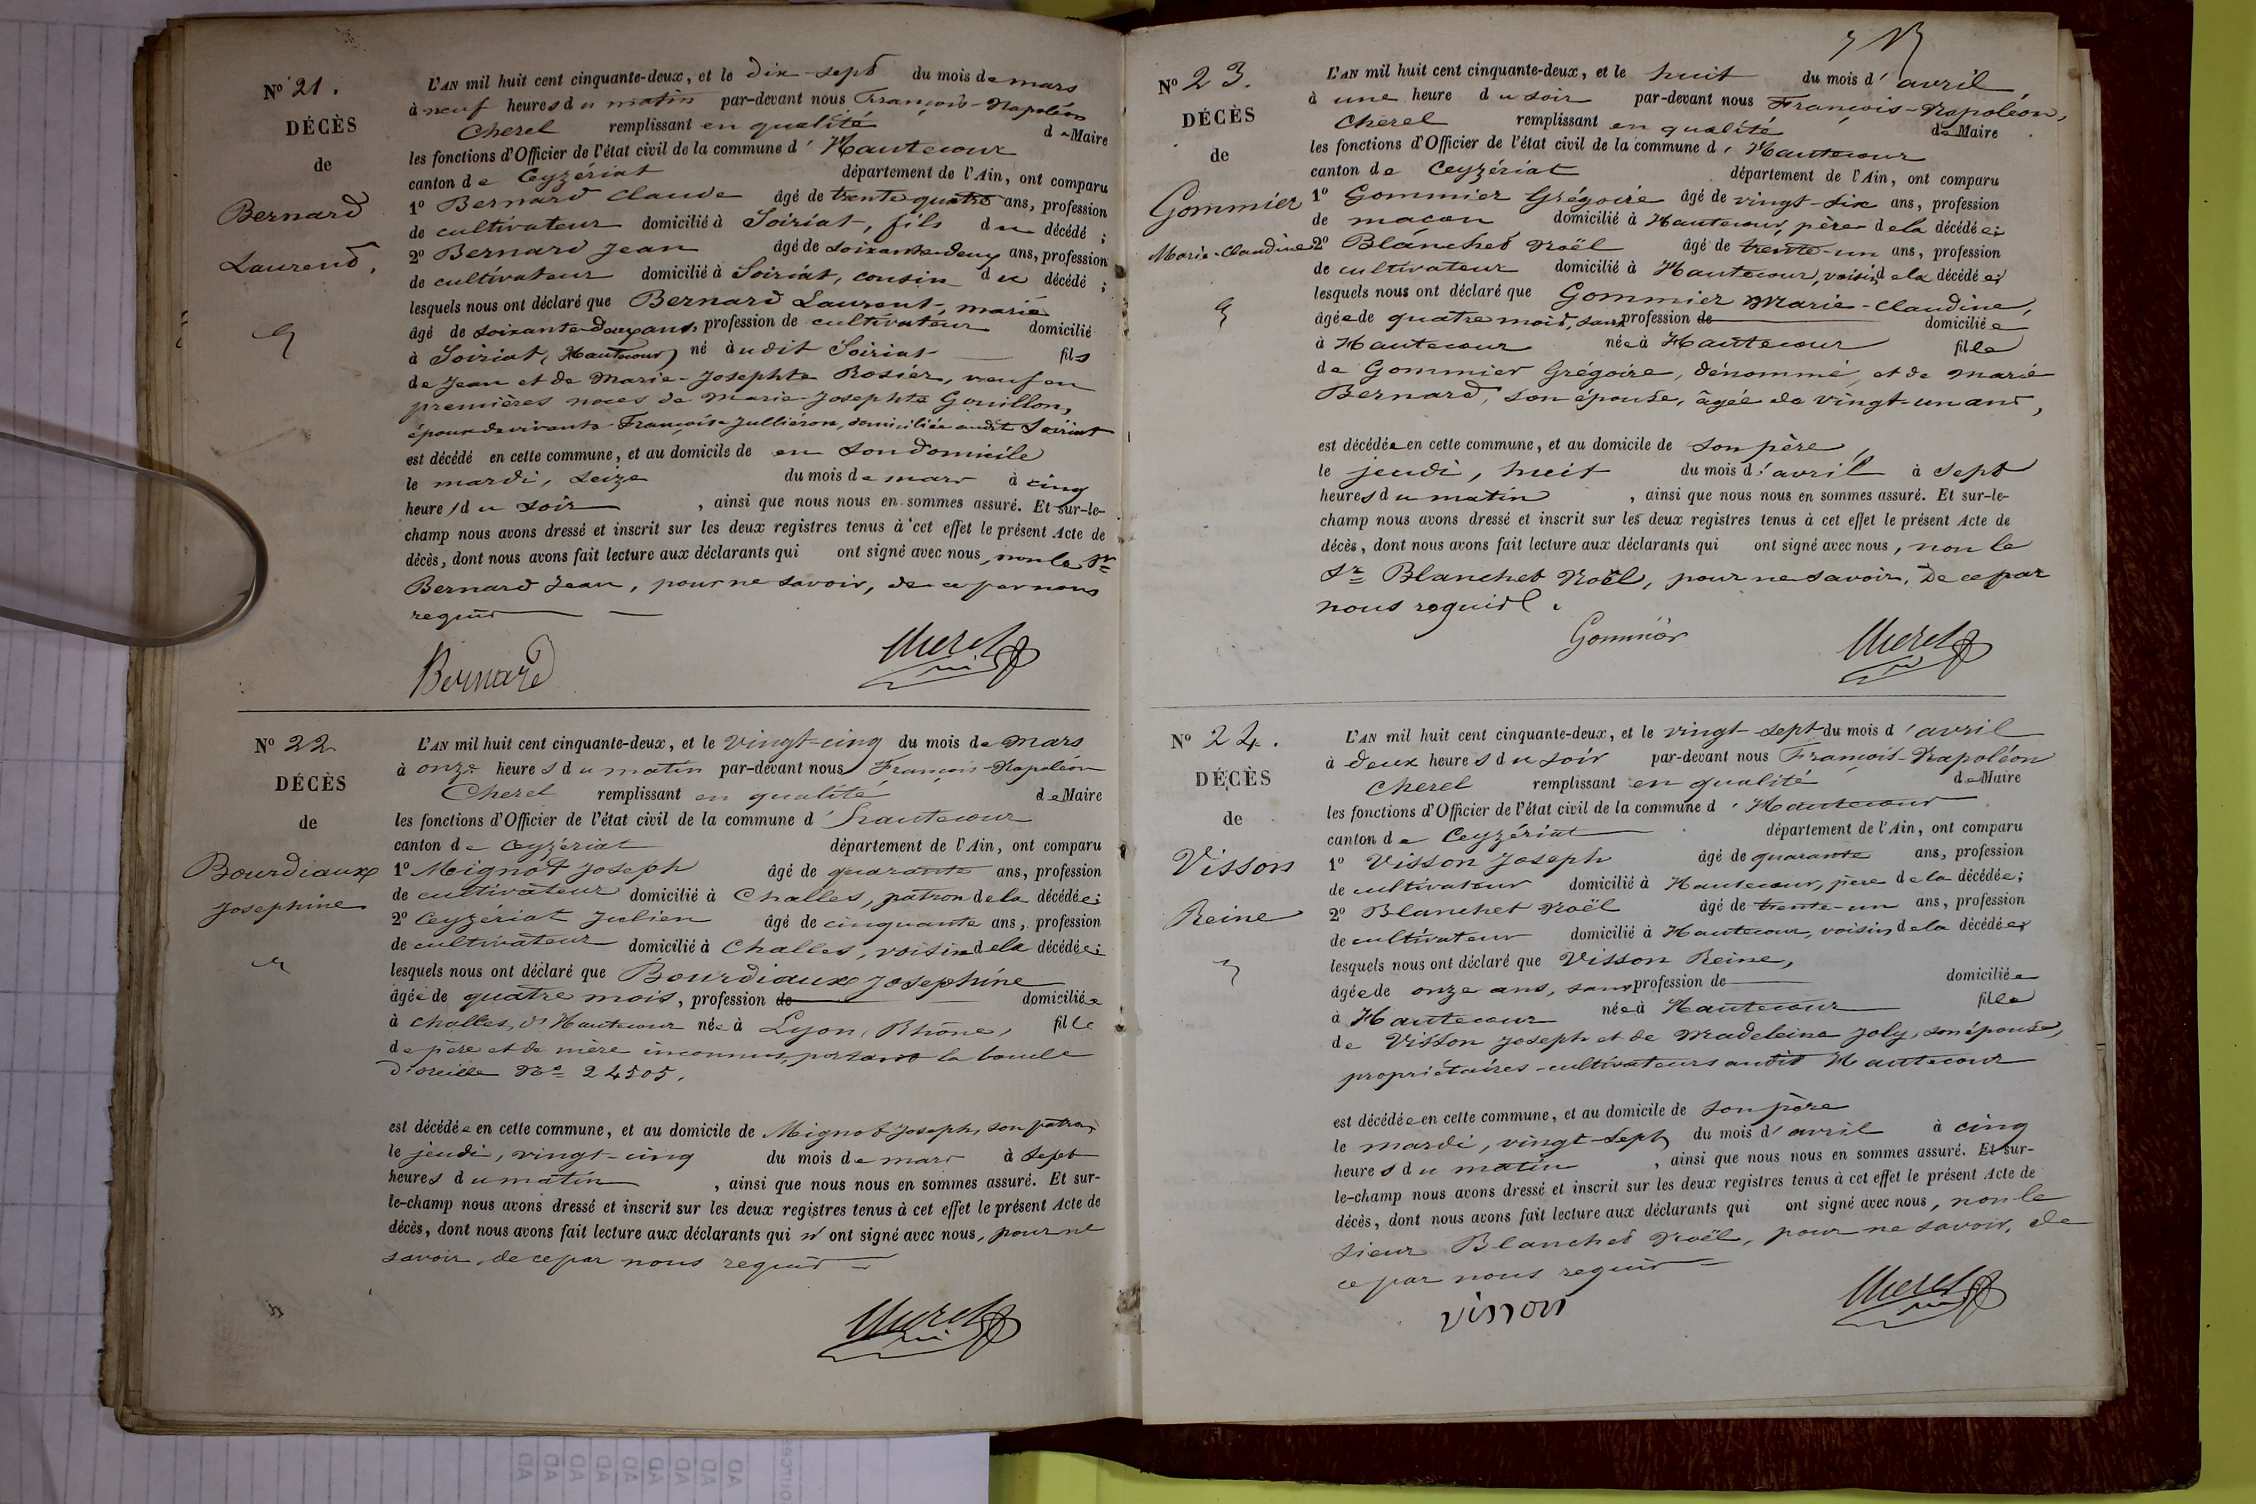 N° 21.
DÉCÈS
de
Bernard
Laurend,
L'AN mil huit cent cinquante-deux, et le dix-sept du mois de mars
à neuf heures du matin par-devant nous François-Napoléon
Cherel remplissant en qualité de Maire
les fonctions d'Officier de l'état civil de la commune d'Hautecour
canton de Ceyzériat département de l'Ain, ont comparu
1° Bernard Claude âgé de trente quatre ans, profession
de cultivateur domicilié à Soiriat, fils du décédé ;
2° Bernard Jean âgé de soixante-deux ans, profession
de cultivateur domicilié à Soiriat, cousin du décédé ;
lesquels nous ont déclaré que Bernard Laurent, marié
âgé de soixante-douze ans, profession de cultivateur domicilié
à Soiriat, Hautecour, né audit Soiriat fils
de Jean et de Marie-Josephte Rosier, veuf en
premières noces de Marie-Josephte Gouillon,
époux devivante Françoise Jullieron, domiciliée audit Soiriat
est décédé en cette commune, et au domicile de en son domicile
le mardi, seize du mois de mars à cinq
heures du soir , ainsi que nous nous en sommes assuré. Et sur-le-
champ nous avons dressé et inscrit sur les deux registres tenus à cet effet le présent Acte de
décès, dont nous avons fait lecture aux déclarants qui ont signé avec nous, non le Sr
Bernard Jean, pour ne savoir, de ce par nous
requis
Bernard Cherel
N° 22
DÉCÈS
de
Bourdiaux
Josephine
L'AN mil huit cent cinquante-deux, et le vingt-cinq du mois de mars
à onze heures du matin par-devant nous François-Napoléon
Cherel remplissant en qualité de Maire
les fonctions d'Officier de l'état civil de la commune d'hautecour
canton de Ceyzériat département de l'Ain, ont comparu
1° Mignot Joseph âgé de quarante ans, profession
de cultivateur domicilié à Challes, patron de la décédée ;
2° Ceyzériat Julien âgé de cinquante ans, profession
de cultivateur domicilié à Challes, voisin de la décédée ;
lesquels nous ont déclaré que Bourdiaux Josephine
âgée de quatre mois, profession de domiciliée
à Challes, d'Hautecour née à Lyon, Rhône, fille
de père et de mère inconnus, portant la boucle
d'oreille N° 24505.
est décédée en cette commune, et au domicile de Mignot Joseph, son patron
le jeudi, vingt-cinq du mois de mars à sept
heures du matin , ainsi que nous nous en sommes assuré. Et sur-
le-champ nous avons dressé et inscrit sur les deux registres tenus à cet effet le présent Acte de
décès, dont nous avons fait lecture aux déclarants qui n'ont signé avec nous, pour ne
savoir, de ce par nous requis
Cherel
N° 23.
DÉCÈS
de
Gommier
Marie-Claudine
L'AN mil huit cent cinquante-deux, et le huit du mois d'avril
à une heure du soir par-devant nous François-Napoléon,
Cherel remplissant en qualité de Maire
les fonctions d'Officier de l'état civil de la commune d'Hautecour
canton de Ceyzériat département de l'Ain, ont comparu
1° Gommier Grégoire âgé de vingt-six ans, profession
de maçon domicilié à Hautecour, père de la décédée ;
2° Blanchet Noël âgé de trente-un ans, profession
de cultivateur domicilié à Hautecour, voisin de la décédée ;
lesquels nous ont déclaré que Gommier Marie-Claudine,
âgée de quatre mois, sans profession de domiciliée
à Hautecour née à Hautecour fille
de Gommier Grégoire, dénommé, et de Marie
Bernard, son épouse, âgée de vingt-un ans,
est décédée en cette commune, et au domicile de son père,
le jeudi, huit du mois d'avril à sept
heures du matin , ainsi que nous nous en sommes assuré. Et sur-le-
champ nous avons dressé et inscrit sur les deux registres tenus à cet effet le présent Acte de
décès, dont nous avons fait lecture aux déclarants qui ont signé avec nous, non le
Sr Blanchet Noël, pour ne savoir, de ce par
nous requis.
Gommier Cherel
N° 24.
DÉCÈS
de
Visson
Reine
L'AN mil huit cent cinquante-deux, et le vingt-sept du mois d'avril
à deux heures du soir par-devant nous François-Napoléon
Cherel remplissant en qualité de Maire
les fonctions d'Officier de l'état civil de la commune d'Hautecour
canton de Ceyzériat département de l'Ain, ont comparu
1° Visson Joseph âgé de quarante ans, profession
de cultivateur domicilié à Hautecour, père de la décédée ;
2° Blanchet Noël âgé de trente-un ans, profession
de cultivateur domicilié à Hautecour, voisin de la décédée ;
lesquels nous ont déclaré que Visson Reine,
âgée de onze ans, sans profession de domiciliée
à Hautecour née à Hautecour fille
de Visson Joseph et de Madeleine Joly, son épouse,
propriétaires-cultivateurs audit Hautecour
est décédée en cette commune, et au domicile de son père
le mardi, vingt-sept du mois d'avril à cinq
heures du matin , ainsi que nous nous en sommes assuré. Et sur-
le-champ nous avons dressé et inscrit sur les deux registres tenus à cet effet le présent Acte de
décès, dont nous avons fait lecture aux déclarants qui ont signé avec nous, non le
sieur Blanchet Noël, pour ne savoir, de
ce par nous requis
visson Cherel